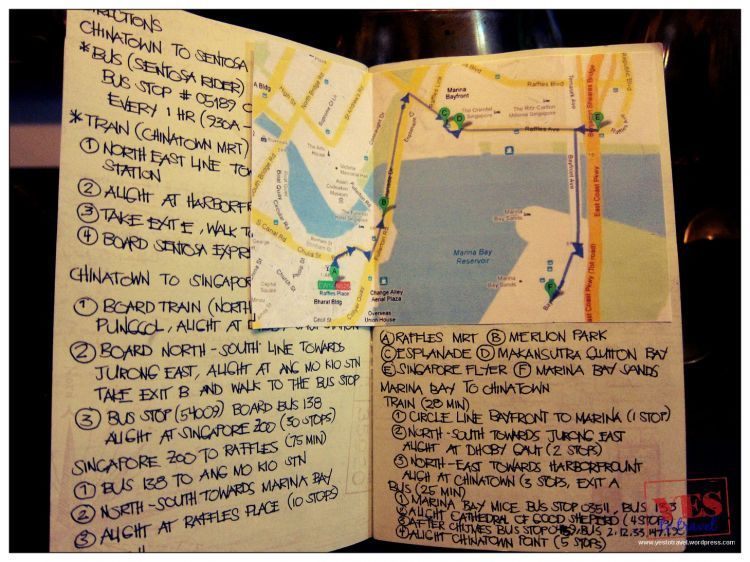 CTIONS
CHINATOWN TO SENTOSA
* BUS (SENTOSA RIDER)
BUS STOP # 05189
EVERY 1 HR (930A -
* TRAIN (CHINATOWN MRT)
① NORTH EAST LINE
STATION
② ALIGHT AT HARBORFR
③ TAKE EXIT E, WALK
④ BOARD SENTOSA EXPR
CHINATOWN TO SINGAPO
① BOARD TRAIN (NORTH
PUNGGOL, ALIGHT AT
② BOARD NORTH-SOUTH LINE TOWARDS
JURONG EAST, ALIGHT AT ANG MO KIO STN
TAKE EXIT B AND WALK TO THE BUS STOP
③ BUS STOP (54009) BOARD BUS 138
ALIGHT AT SINGAPORE ZOO (30 STOPS)
SINGAPORE ZOO TO RAFFLES (75 MIN)
① BUS 138 TO ANG MO KIO STN
② NORTH-SOUTH TOWARDS MARINA BAY
③ ALIGHT AT RAFFLES PLACE (10 STOPS)
A Bldg
High St
North Bridge Rd
Supreme Ct Ln
The Arts House
Victoria Memorial Hall
Asian Civilisation Museum
South Bridge Rd
Boat Quay
Circular Rd
S Canal Rd
Chulia St
Church St
Raffles Place
Bharat Bldg
Cecil St
Change Alley Aerial Plaza
Overseas Union House
Collyer Quay
Fullerton Rd
Marina Bayfront
The Oriental Singapore
The Ritz-Carlton Millenia Singapore
Raffles Blvd
Raffles Ave
Temasek Ave
Benjamin Sheares Bridge
Republic Blvd
Bayfront Ave
East Coast Pkwy
East Coast Pkwy (Toll road)
Marina Bay Reservoir
Marina Bay Sands
Marina Bay Sands
A
B
C
D
E
F
Ⓐ RAFFLES MRT Ⓑ MERLION PARK
Ⓒ ESPLANADE Ⓓ MAKANSUTRA GLUTTON BAY
Ⓔ SINGAPORE FLYER Ⓕ MARINA BAY SANDS
MARINA BAY TO CHINATOWN
TRAIN (28 MIN)
① CIRCLE LINE BAYFRONT TO MARINA (1 STOP)
② NORTH-SOUTH TOWARDS JURONG EAST
ALIGHT AT DHOBY GAUT (2 STOPS)
③ NORTH-EAST TOWARDS HARBORFROUNT
ALIGH AT CHINATOWN (3 STOPS, EXIT A
BUS (25 MIN)
① MARINA BAY MICE BUS STOP 03511, BUS 133
ALIGHT CATHEDRAL OF GOOD SHEPHERD (4 STOPS
③ AFTER CHIJMES BUS STOP BUS 2, 12, 33,
④ ALIGHT CHINATOWN POINT (5 STOPS)
YES
to travel
www.yestotravel.wordpress.com